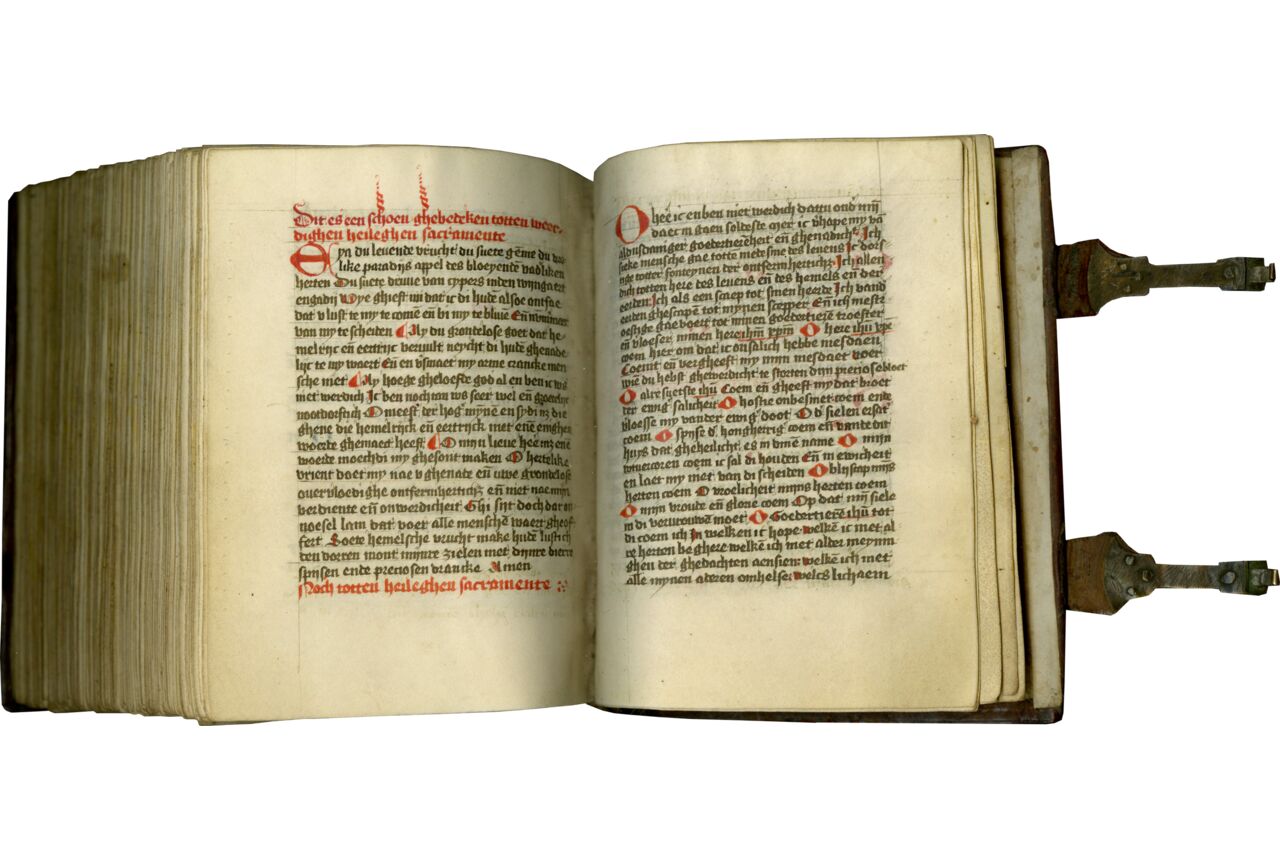 Dit es een schoen ghebedeken totten weer-
dighen heileghen sacramente
yn du levende vrucht du suete
like paradijs appel des bloeyende
herten Du suete druve van cypers inden wyngaert
engadij ghieft mi dat ic di hude alsoe ontfae
dat v lust te my te comē en bi my te blive Eñ nūmmeer
van my te scheiden Ay du grondelose goet dat he-
melrijc eñ eertrijc vervult neycht di hudē ghenade
lijc te my waert Eñ en vsmaet my arme crancke men
sche niet Ay hoege gheloefde god al en ben ic ws
niet werdich Ic ben nochtan ws seer wel eñ
nootdorftich O meest der
ghene die hemelrijck eñ eertrijck met enē enighen
woerde ghemaect heeft O mijn lieve heer
woerde moechdi my ghesont maken O hertelike
vrient doet my nae v ghenade eñ uwe grondelose
overvloedighe eñ niet nae mijn
verdiente eñ onwerdicheit Ghi sijt doch dat on
noesel lam dat voer alle menschē waert gheof
fert Soete hemelsche vrucht make hude lustich
den dorren mont mijnre zielen met dijnre
spijsen ende preciosen drancke Amen
Noch totten heileghen sacramente
O heē ic en ben niet werdich dattu ond mijn
daec in gaen soldeste mer ic vhape my vā
goedertierēheit eñ ghenadich Ich
sieke mensche gae totte medesine des levens ic dors
tige totter fonteynen der Ich allen
dich totten here des levens eñ des hemels eñ der
eerden Ich als een scaep tot sinen heerde Ich
ghescapē tot mynen scepper Eñ ich mest
gae voert tot minen goedertierē troester
eñ vloeser minen here ihm xpm O here ihu xpe
coem hier om dat ic onsalich hebbe mesdaen
Coemt eñ vergheeft my mijn mesdaet voer
wiē du hebst ghewerdicht te storten dijn preciose bloet
O alre suetste ihū Coem eñ gheeft my dat broet
der ewig salicheit O hostie onbesmet coem ende
vloesse my vander ewig doot O d sielen
coem O spijse d hongherig coem eñ vande dit
huys dat gheheilicht es in dinē name O mijn
coem ic sal di houden Eñ in ewicheit
en laet my niet van di scheiden O blijscap mijs
herten coem O vroelicheit mijns herten coem
O mijn vroude eñ glorie coem Op dat mijn siele
in di vervrouwē moet O Goedertierē ihū tot
di coem ich In welken ic hope welkē ic met al
re herten beghere welkē ich met alder
gher der ghedachten aensien welkē ich met
alle mynen aderen omhelse welcs lichaem